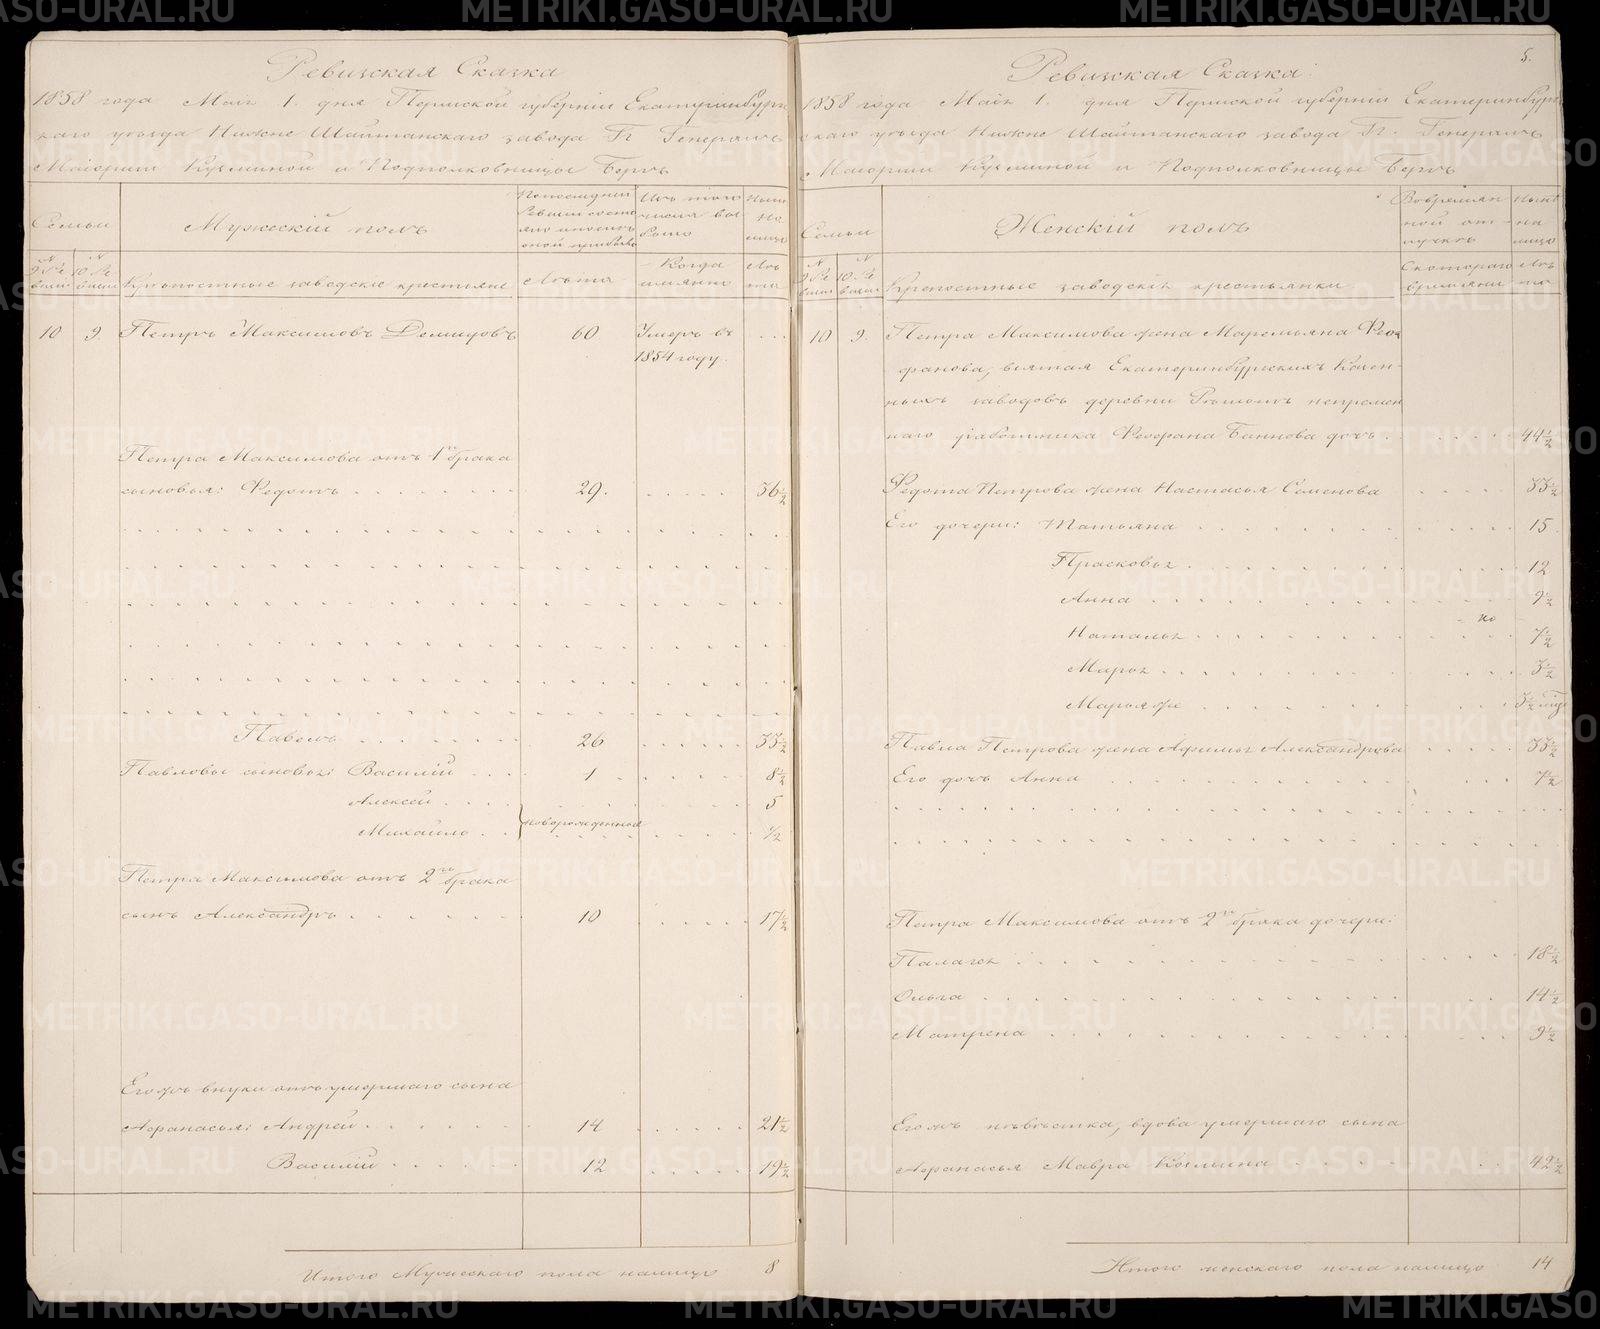 Ревизская Сказка
1858 года Маія 1. дня Пермской губерніи Екатеринбург
скаго уѣзда Нижне Шайтанскаго завода Гг. Генералъ
Маіорши Кузьминой и Подполковницы Бергъ
Семьи
Мужескій полъ
По последней Ревизіи состояло и после оной прибыло
Изъ того числа выбыло
Ныне на лицо
№ 9 Ре визіи
№ 10 Ре визіи
Крѣпостные заводскіе крестьяне
Лѣта
Когда имянно
Лѣ та
10 9. Петръ Максимовъ Демидовъ 60 Умеръ въ . . .
1854 году.
Петра Максимова отъ 1го брака
сыновья: Федотъ 29. 36½
Павелъ 26 33½
Павловы сыновья: Василій 1 8½
Алексей 5
Михайло новорожденные ½
Петра Максимова отъ 2го брака
сынъ Александръ 10 17½
Егожъ внуки отъ умершаго сына
Афанасья: Андрей 14 21½
Василій 12 19½
Итого Мужескаго пола налицо 8
5.
Ревизская Сказка
1858 года Маія 1. дня Пермской губерніи Екатеринбург
скаго уѣзда Нижне Шайтанскаго завода Гг. Генералъ
Маіорши Кузьминой и Подполковницы Бергъ
Семьи
Женскій полъ
Во времян ной от лучкѣ
Ныне на лицо
№ 9 Ре визіи
№ 10 Ре визіи
Крепостные заводскія крестьянки
Скотораго времяни
Лѣ та
10 9. Петра Максимова жена Маремьяна Фео
фанова, взятая Екатеринбургскихъ Казен-
ныхъ заводовъ деревни непремен
наго работника Феофана Баннова дочь. 44½
Федота Петрова жена Настасья Семенова 33½
Его дочери: Татьяна 15
Прасковья 12
Анна 9½
Наталья 7½
Марья 3½
Марья же
Павла Петрова жена Афимья Александрова 33½
Его дочь Анна 7½
Петра Максимова отъ 2го брака дочери:
Палагея 18½
Ольга 14½
Матрена 9½
Егожъ невѣстка, вдова умершаго сына
Афанасья Мавра Козмина 42½
Итого женскаго пола налицо 14
METRIKI.GASO-URAL.RU